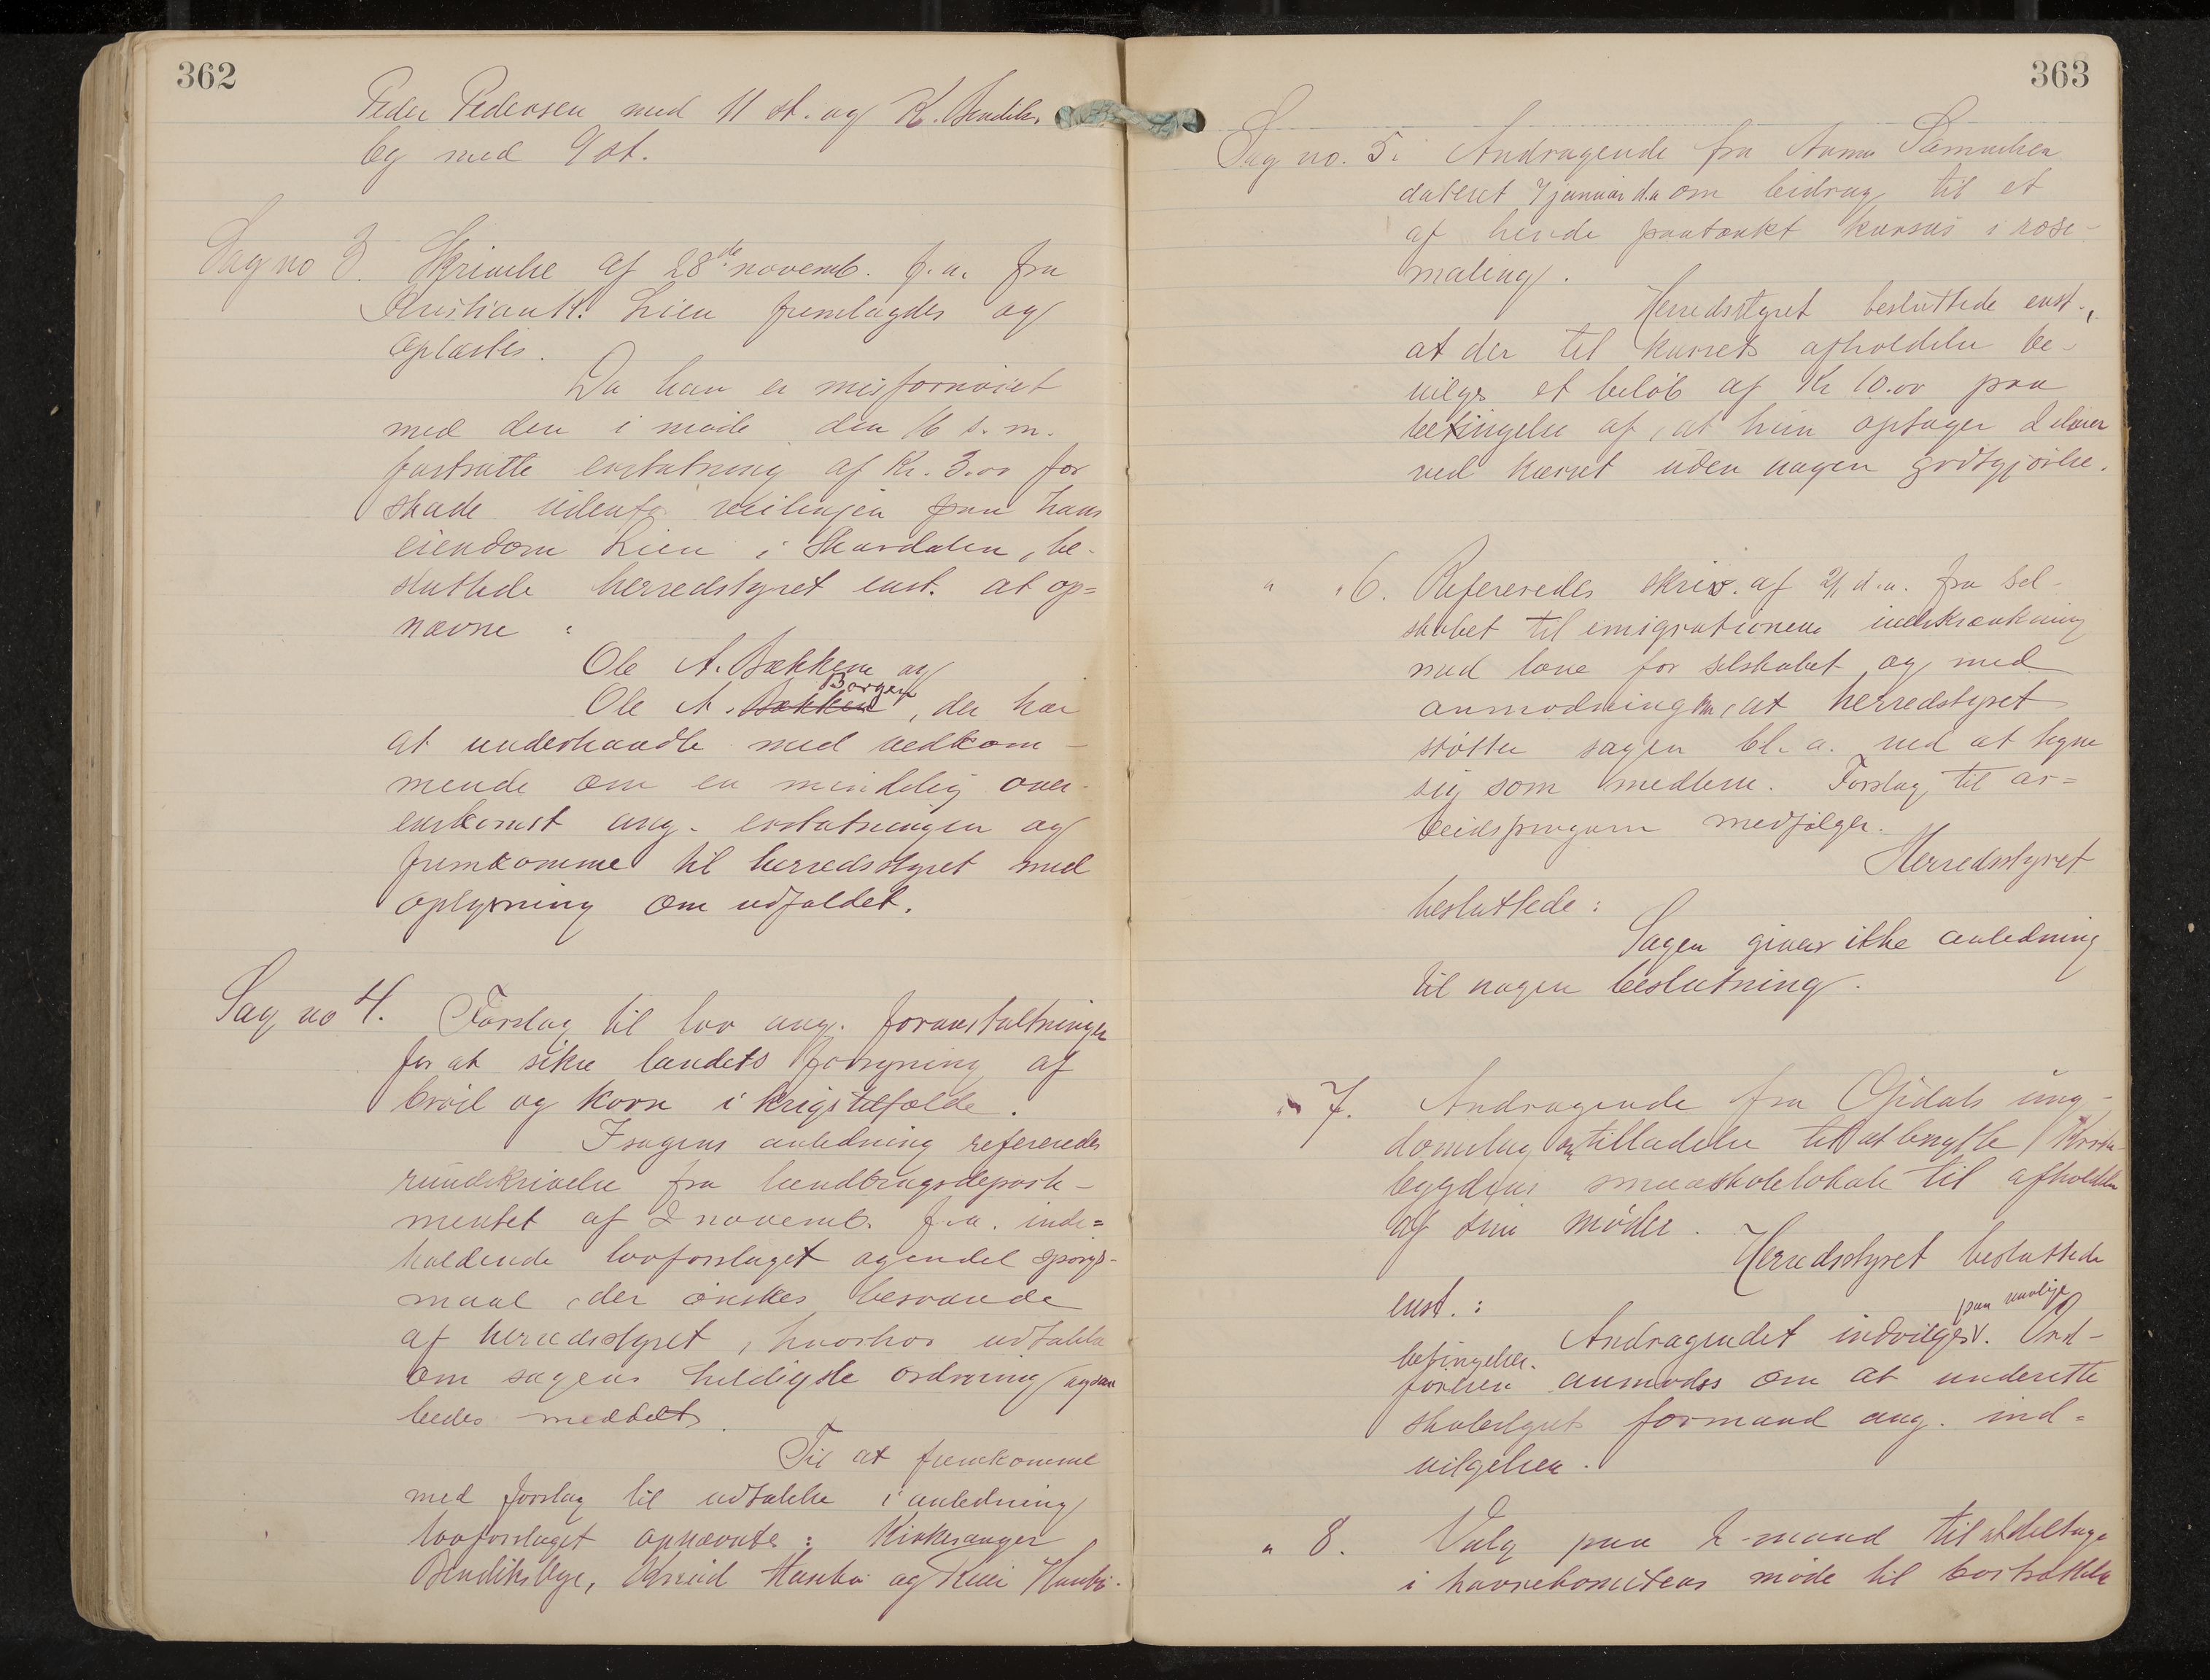 362
Peder Pedersen med 11 st. og K. Bendiks
by med 9 st.
Sag no 3. Skrivelse af 28de novemb. f.a. fra
Kristian K. Lien fremlagdes og
oplæstes.
Da han er misfornøiet
med den i møde den 16 s.m.
fastsatte erstatning af Kr. 3.00 for
skade udenfor veilinjen paa hans
eiendom Lien i Skurdalen, be-
sluttede herredstyret enst. at op=
nævne :
Ole A. Bækken og
Borgen
Ole A. Bækken, der har
at underhandle med vedkom-
mende om en mindelig over-
enskomst ang. erstatningen og
fremkomme til herredsstyret med
oplysning om udfaldet.
Sag no 4. Forslag til lov ang. foranstaltninger
for at sikre landets forsyning af
brød og korn i krigstilfælde.
I sagens anledning refereredes
rundskrivelse fra landbrugsdeparte-
mentet af 2 novemb. f.a. inde=
holdende lovforslaget og endel spørgs-
maal, der ønskes besvarede
af herredsstyret, hvorhos udtalelse
om sagens heldigste ordning ogsaa
bedes meddelt.
Til at fremkomme
med forslag til udtalelse i anledning
lovforslaget opnævntes: Kirkesanger
Bendiksby, Knud
363
Sag no. 5. Andragende fra Anna
dateret 7 januar d.a om bidrag til et
af hende paatænkt kursus i rose-
maling.
Herredsstyret besluttede enst.,
at der til kursets afholdelse be-
vilges et beløb af Kr 10.00 paa
betingelse af, at hun optager 2 elever
ved kurset uden nogen godtgjørelse.
" " 6. Refereredes skriv. af 2/1 d.a. fra Sel-
skabet til emigrationens indskrænkning
med love for selskabet og med
anmodning om, at herredstyret
støtter sagen bl.a. ved at tegne
sig som medlem. Forslag til ar=
beidsprogram medfølger.
Herredsstyret
besluttede:
Sagen giver ikke anledning
til nogen beslutning.
" 7. Andragende fra ung-
domslag om tilladelse til at benytte
bygdens smaaskolelokale til afholdelse
af sine møder.
Herredsstyret besluttede
enst.:
paa vanlige
Andragendet indvilges. Ord-
betingelser.
føreren anmodes om at underrette
skolestyrets formand ang. ind=
vilgelsen.
" 8. Valg paa 2 mand til at deltage
i havnekomiteens møde til